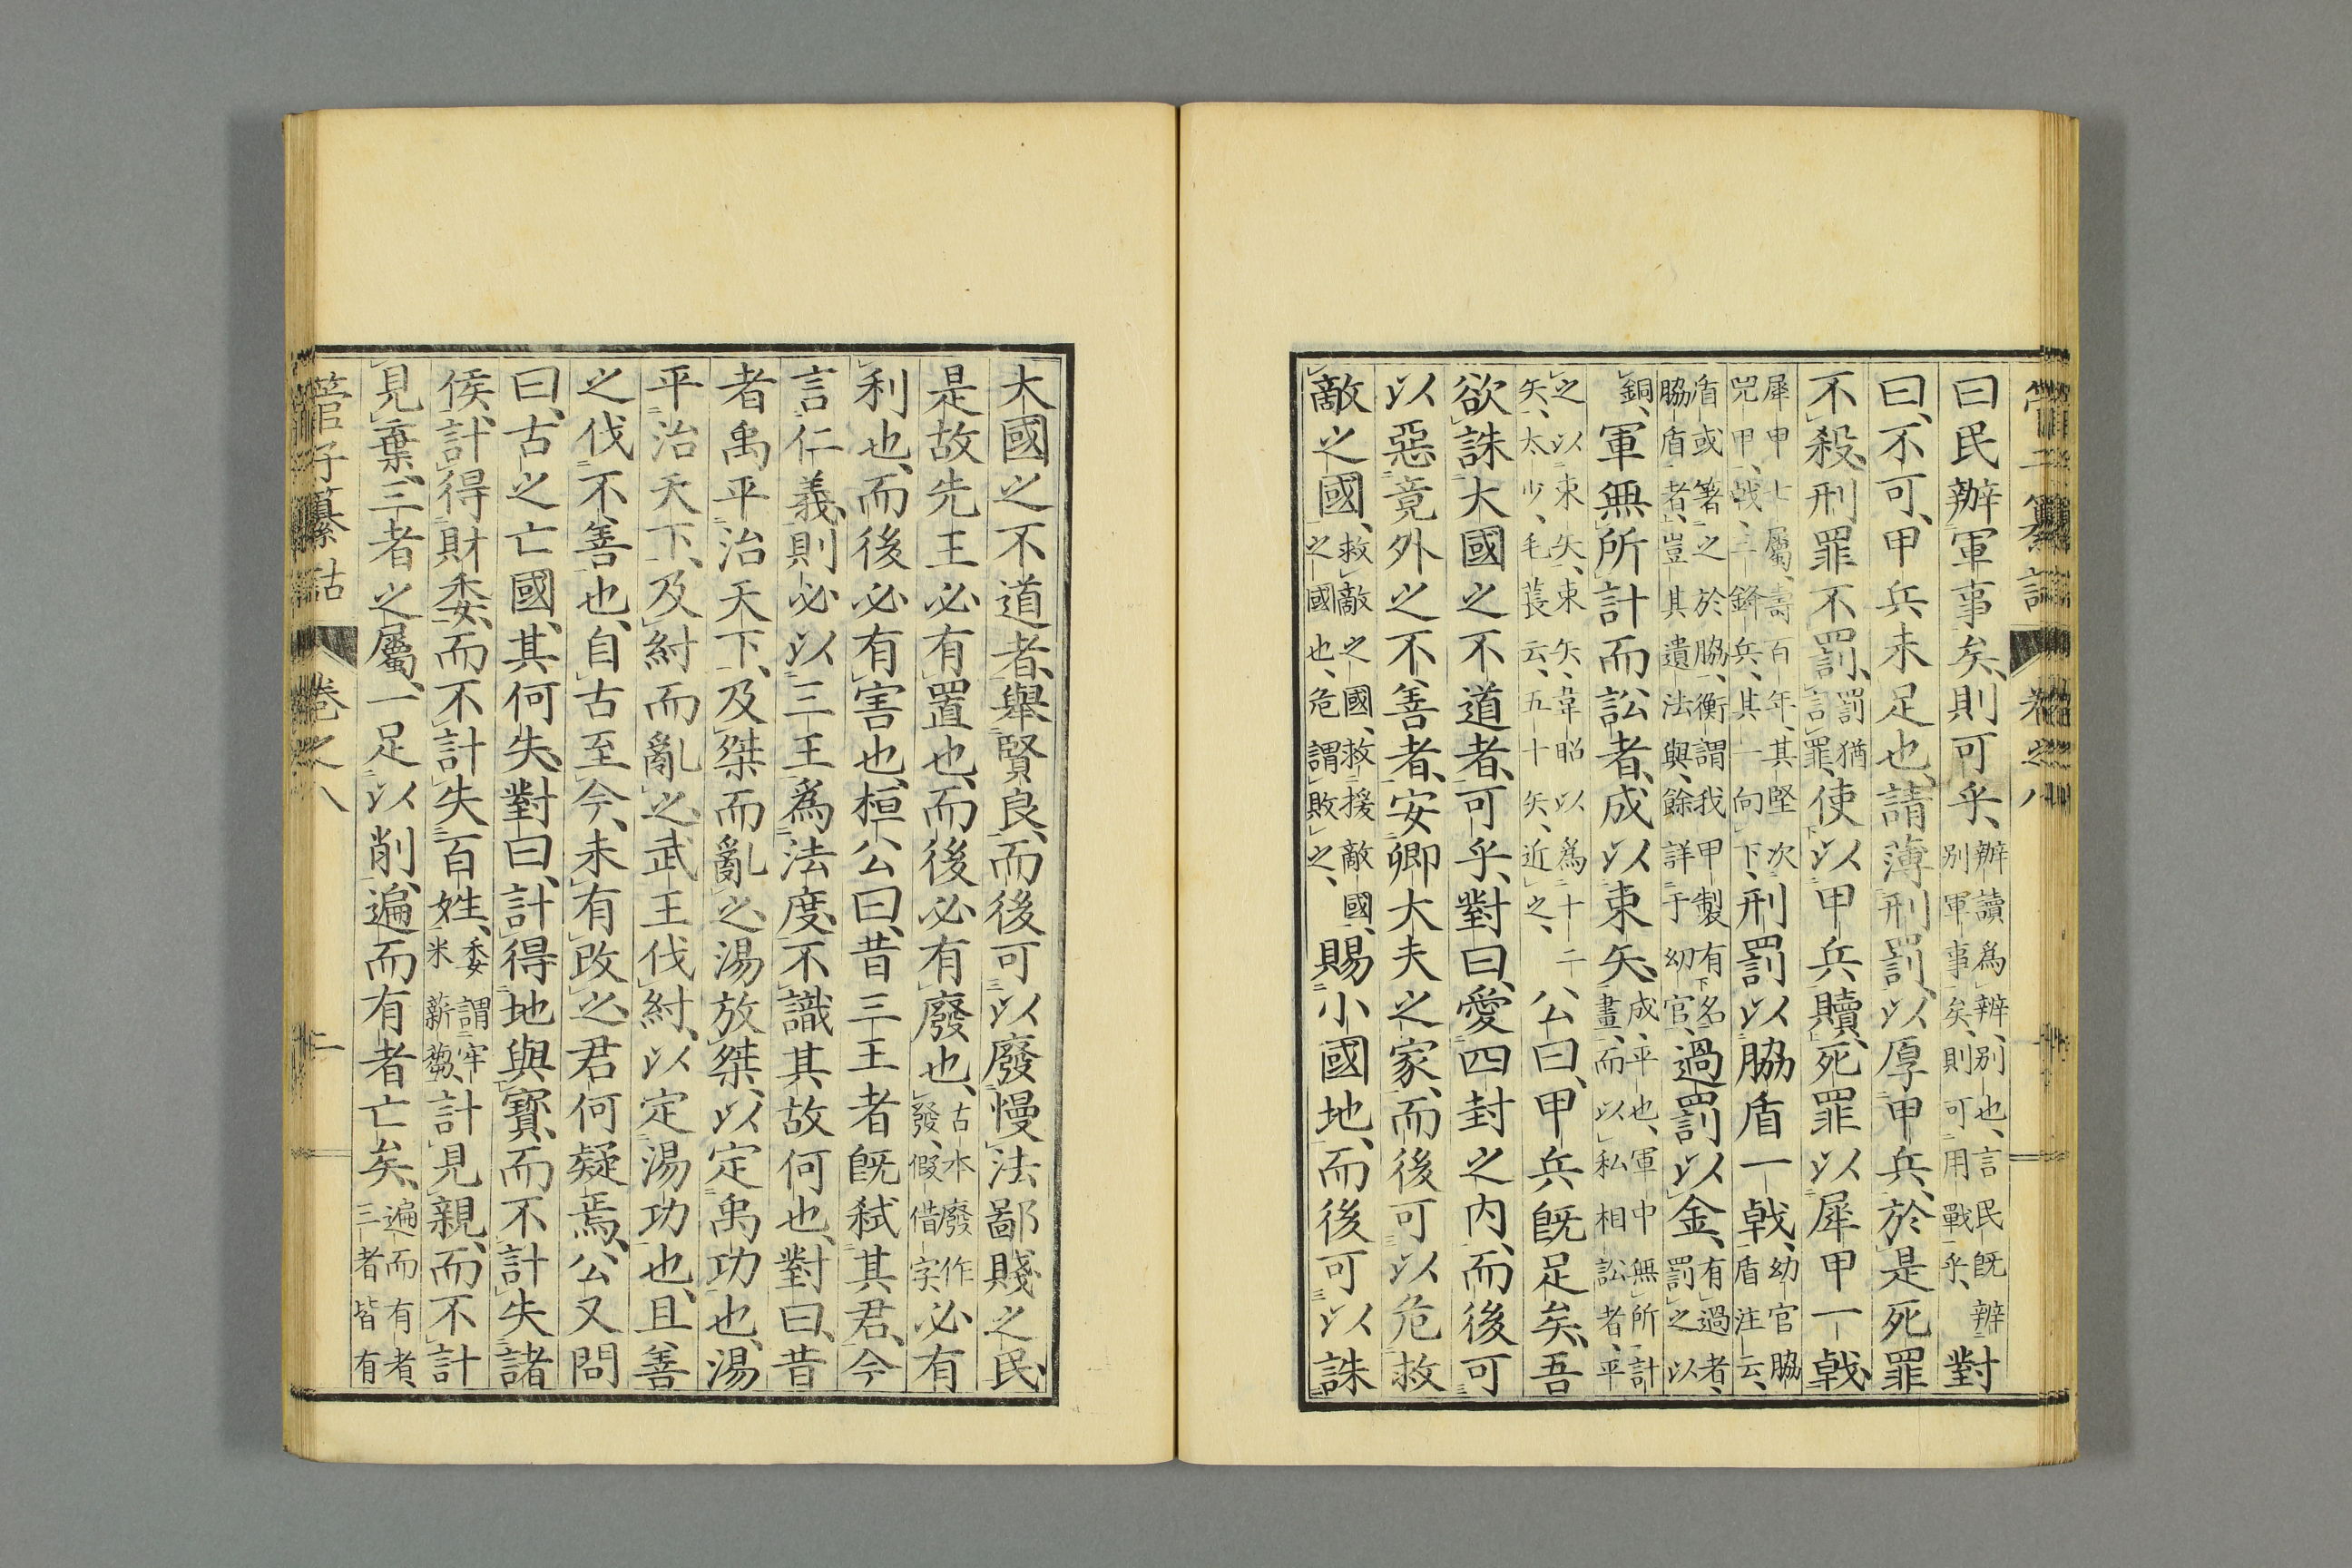 管子纂詁　卷之八
曰民辦軍事矣、則可乎、辦讀爲辨、別也、言民既辨別軍事矣、則可用戰乎、對
曰、不可、甲兵未足也、請薄刑罰、以厚甲兵、於是死罪
不殺、刑罪不罰、罰猶言罪、使以甲兵贖、死罪以犀甲一戟、
犀甲七屬、壽百年、其堅次兕甲、戟、三鋒兵、其一向下、刑罰以脇盾一戟、幼官脇盾注云、
盾或箸之於脇、衡謂我甲製有名脇盾者、豈其遺法與、餘詳于幼官、過罰以金、有過者、罰之以
銅、軍無所計而訟者、成以束矢、成、平也、軍中無所計畫、而以私相訟者、平
之以束矢、束矢、韋昭以爲十二矢、太少、毛萇云、五十矢、近之、公曰、甲兵既足矣、吾
欲誅大國之不道者、可乎、對曰、愛四封之内、而後可
以惡竟外之不善者、安卿大夫之家、而後可以危救
敵之國、救敵之國、救援敵國、之國也、危謂敗之、賜小國地、而後可以誅
大國之不道者、舉賢良、而後可以廢慢法鄙賤之民、
是故先王必有置也、而後必有廢也、古本廢作發、假借字、必有
利也、而後必有害也、桓公曰、昔三王者既弑其君、今
言仁義、則必以三王爲法度、不識其故何也、對曰、昔
者禹平治天下、及桀而亂之、湯放桀、以定禹功也、湯
平治天下、及紂而亂之、武王伐紂、以定湯功也、且善
之伐不善也、自古至今、未有改之、君何疑焉、公又問
曰、古之亡國、其何失、對曰、計得地與寶、而不計失諸
侯、計得財委、而不計失百姓、委謂牢米薪芻、計見親、而不計
見棄、三者之屬、一足以削、遍而有者亡矣、遍而有者、三者皆有
管子纂詁　卷之八　二